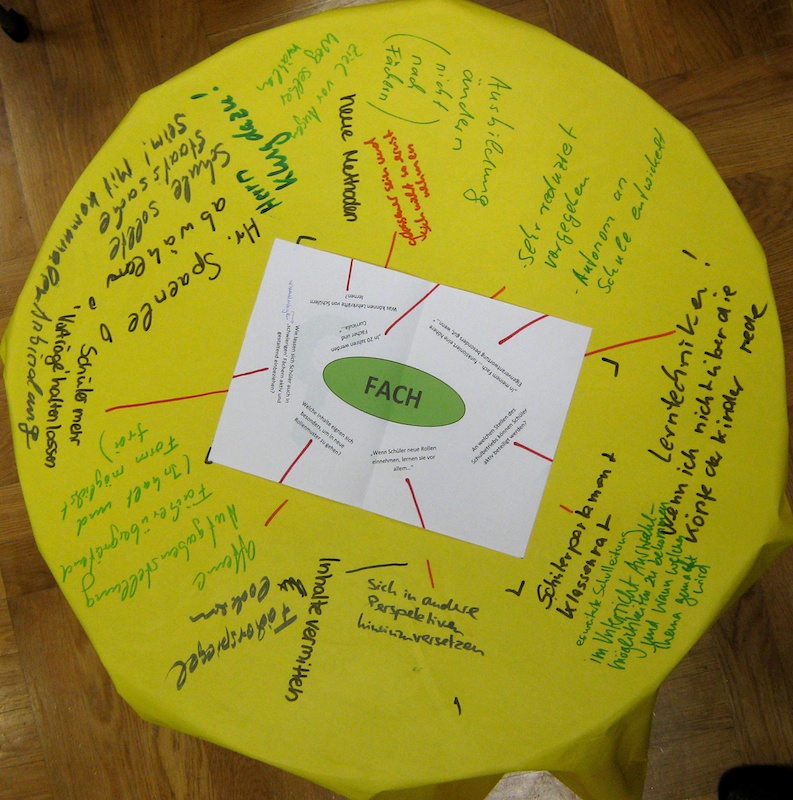 FACH
Was können Lehrkräfte von Schülern
lernen?
„In 20 Jahren werden
Fächer und
Curricula…“
„In meinem Fach
funktioniert eine höhere
Eigenverantwortung besonders gut, wenn…“
An welchen Stellen des
Schulbetriebs können Schüler
aktiv beteiligt werden?
„Wenn Schüler neue Rollen
einnehmen, lernen sie vor
allem…“
Welche Inhalte eignen sich
besonders, um in neue
Rollenmuster zu gehen?
Wie lassen sich Schüler auch in
„schwierigen“ Fächern aktiv und
gestaltend einbeziehen?
Neue Methoden
Ziel vor Augen
Weg selber
wählen
Ausbildung
ändern
(nicht
nach
Fächern)
- Sehr reduziert
vorgegeben
- Autonom an
Schule entwickelt
Lerntechniken!
Wenn ich nicht über die
Köpfe der Kinder rede
Schülerparlament
Klassenrat
erweiterte Schulleitung
im Unterricht Auswahl-
möglichkeiten zu bekommen
und wann welches
Thema gemacht
wird
Sich in andere
Perspektiven
hineinversetzen
Inhalte vermitteln
Offene
Aufgabenstellung
Fächerübergreifend
(Inhalt und
Form möglichst
frei)
Schüler mehr
Vorträge halten lassen
Hr. Spaenle
abwählen
Schule sollte
Staatssache
sein! Mit kommunaler
Anbindung
Herrn
Klug dazu!